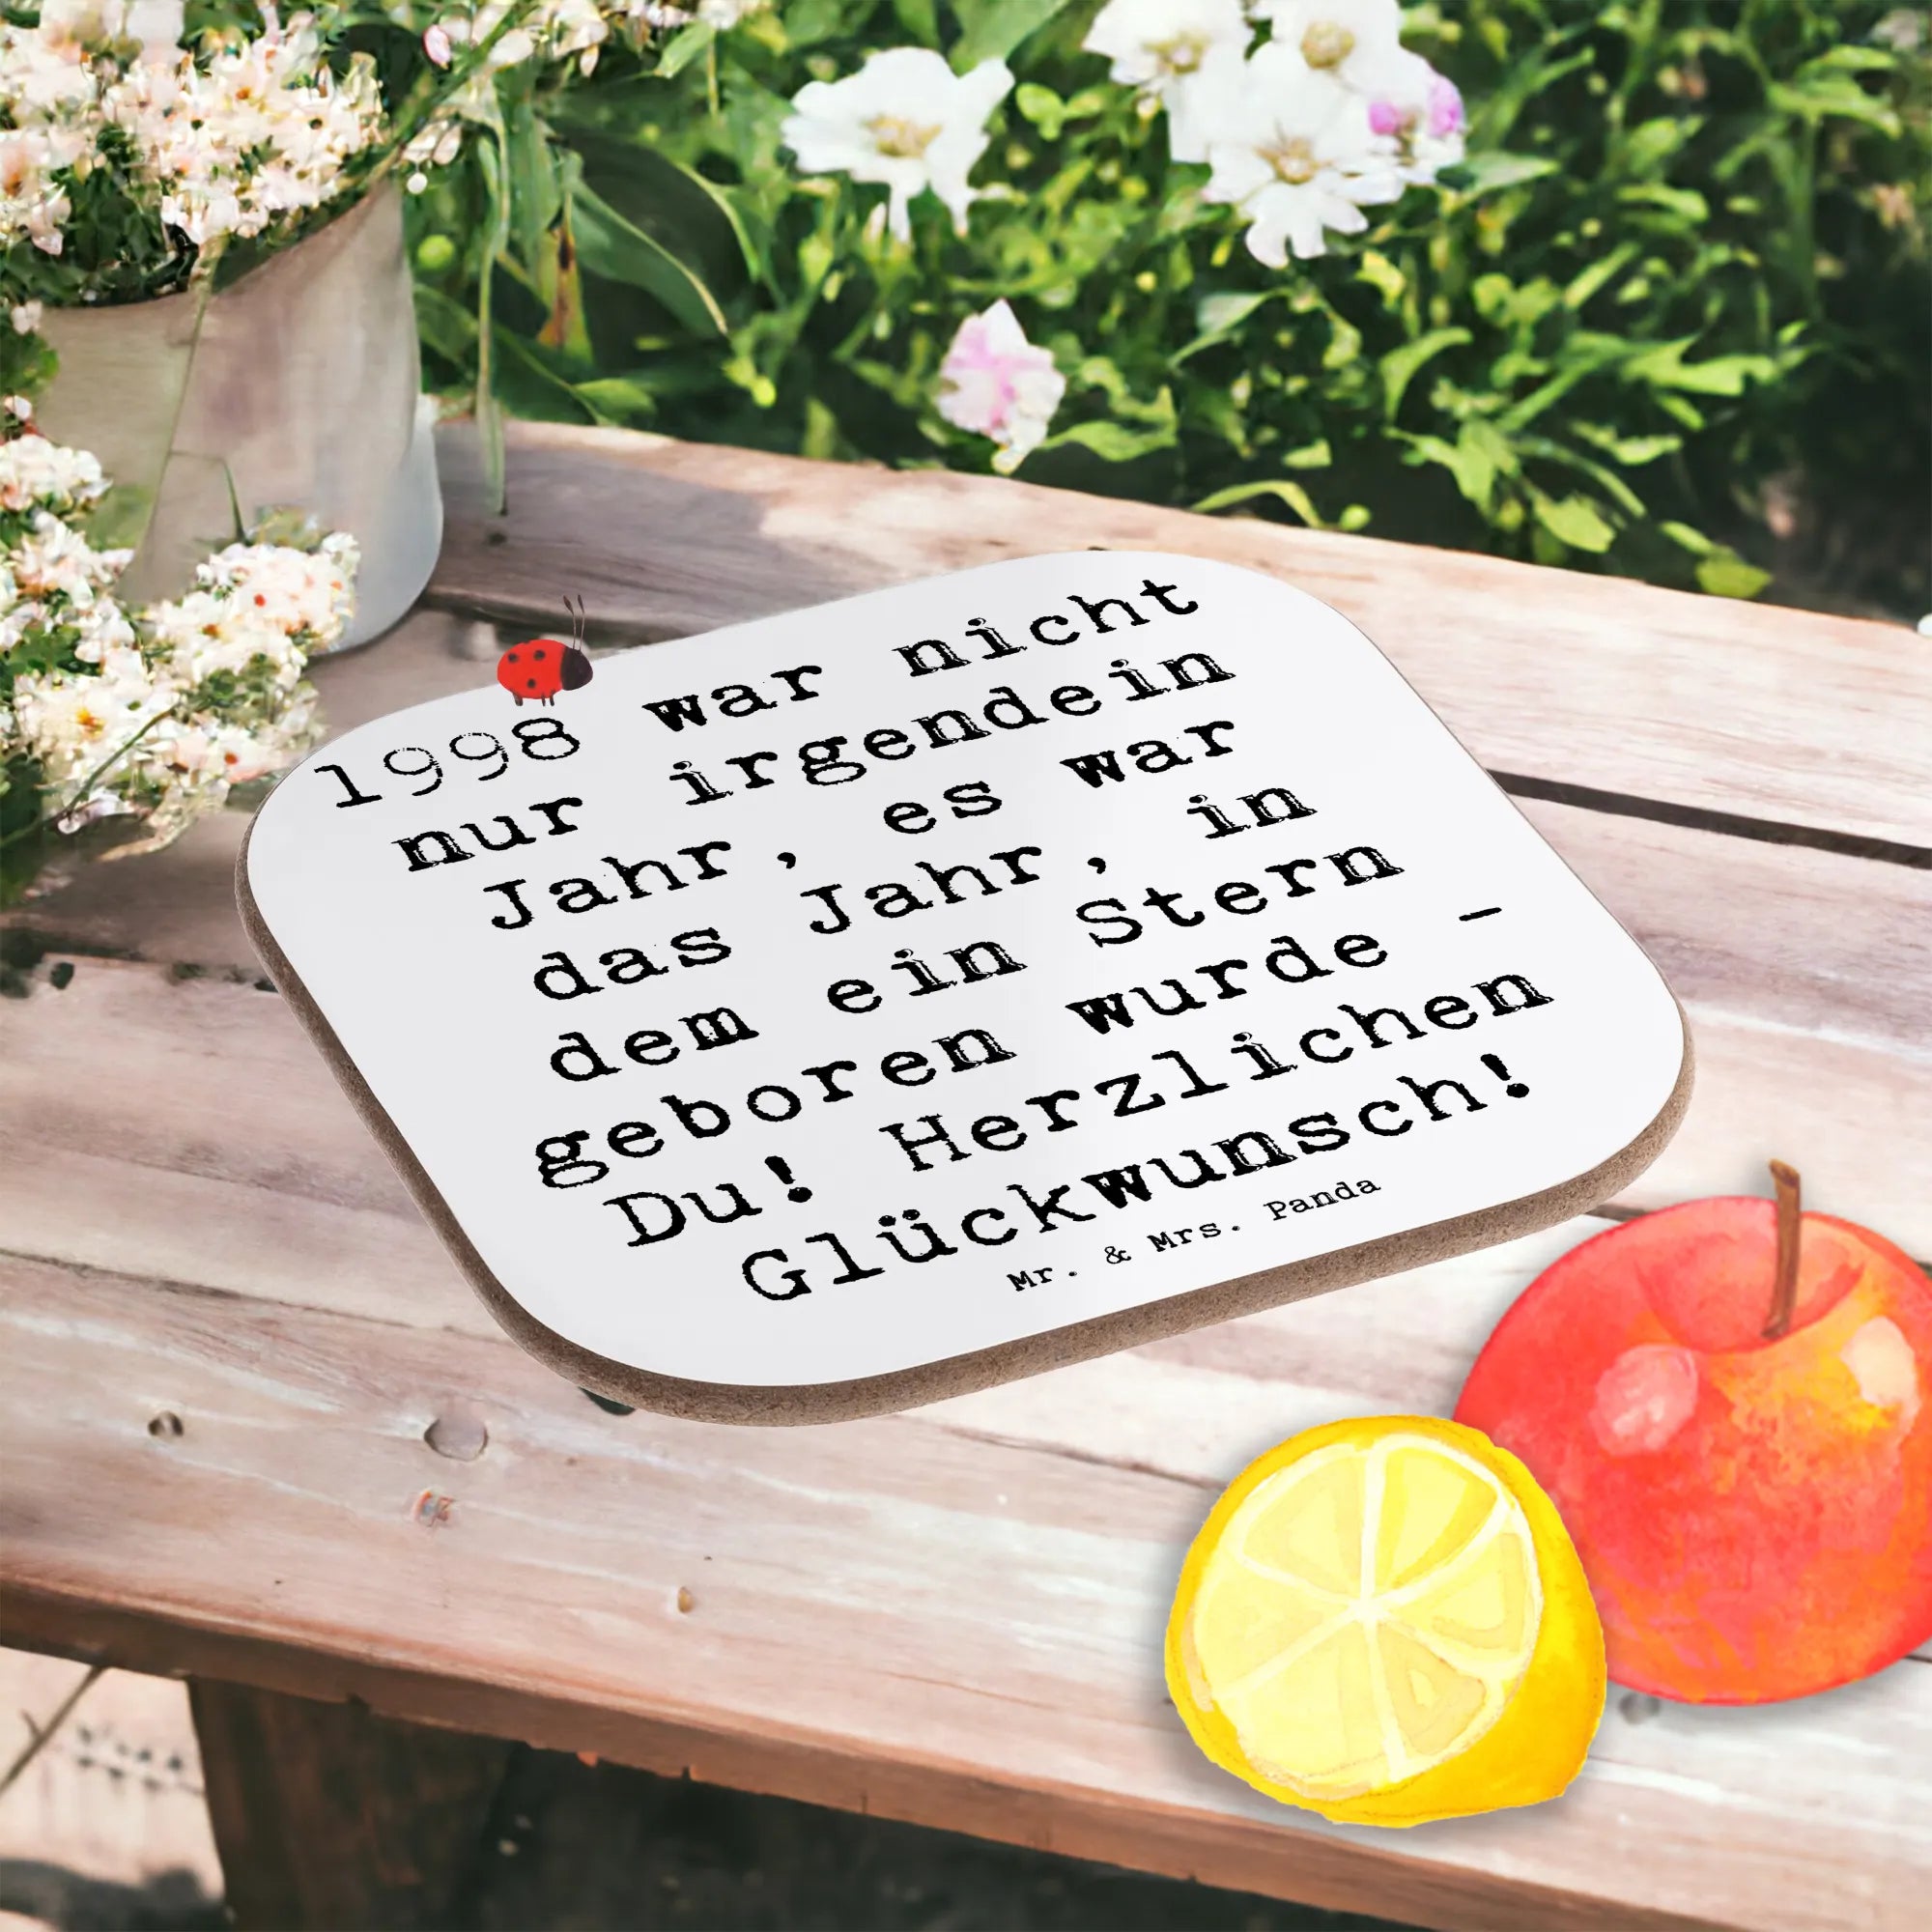 1998 war nicht
nur irgendein
Jahr, es war
das Jahr, in
dem ein Stern
geboren wurde -
Du! Herzlichen
Glückwunsch!
Mr. & Mrs. Panda